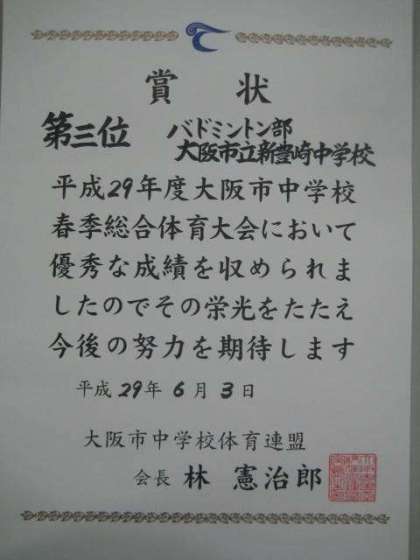 賞状
第三位 バドミントン部
大阪市立新豊崎中学校
平成29年度大阪市中学校
春季総合体育大会において
優秀な成績を収められま
したのでその栄光をたたえ
今後の努力を期待します
平成29年6月3日
大阪市中学校体育連盟
会長 林 憲治郎